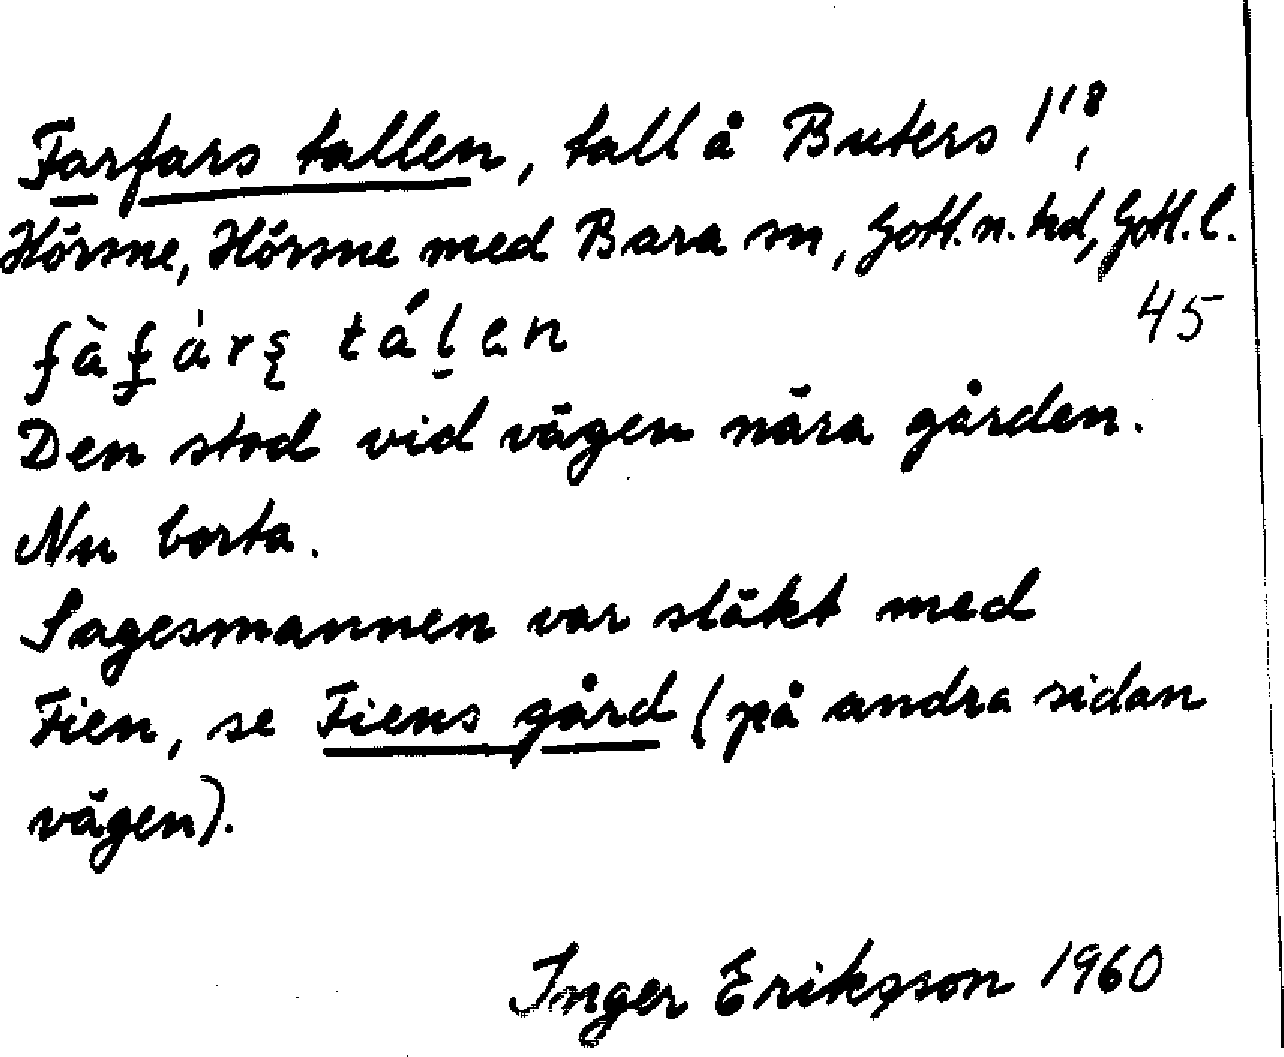 Farfars tallen, tall å Buters 1¹⁸,
Hörsne, Hörsne med Bara sn, Gotl. n. hd, Gotl. l.
45
fàf̱árs̨ tá́ḷen
Den stod vid vägen nära gården.
Nu borta.
Sagesmannen var släkt med
Fien, se Fiens gård (på andra sidan
vägen).
Inger Eriksson 1960